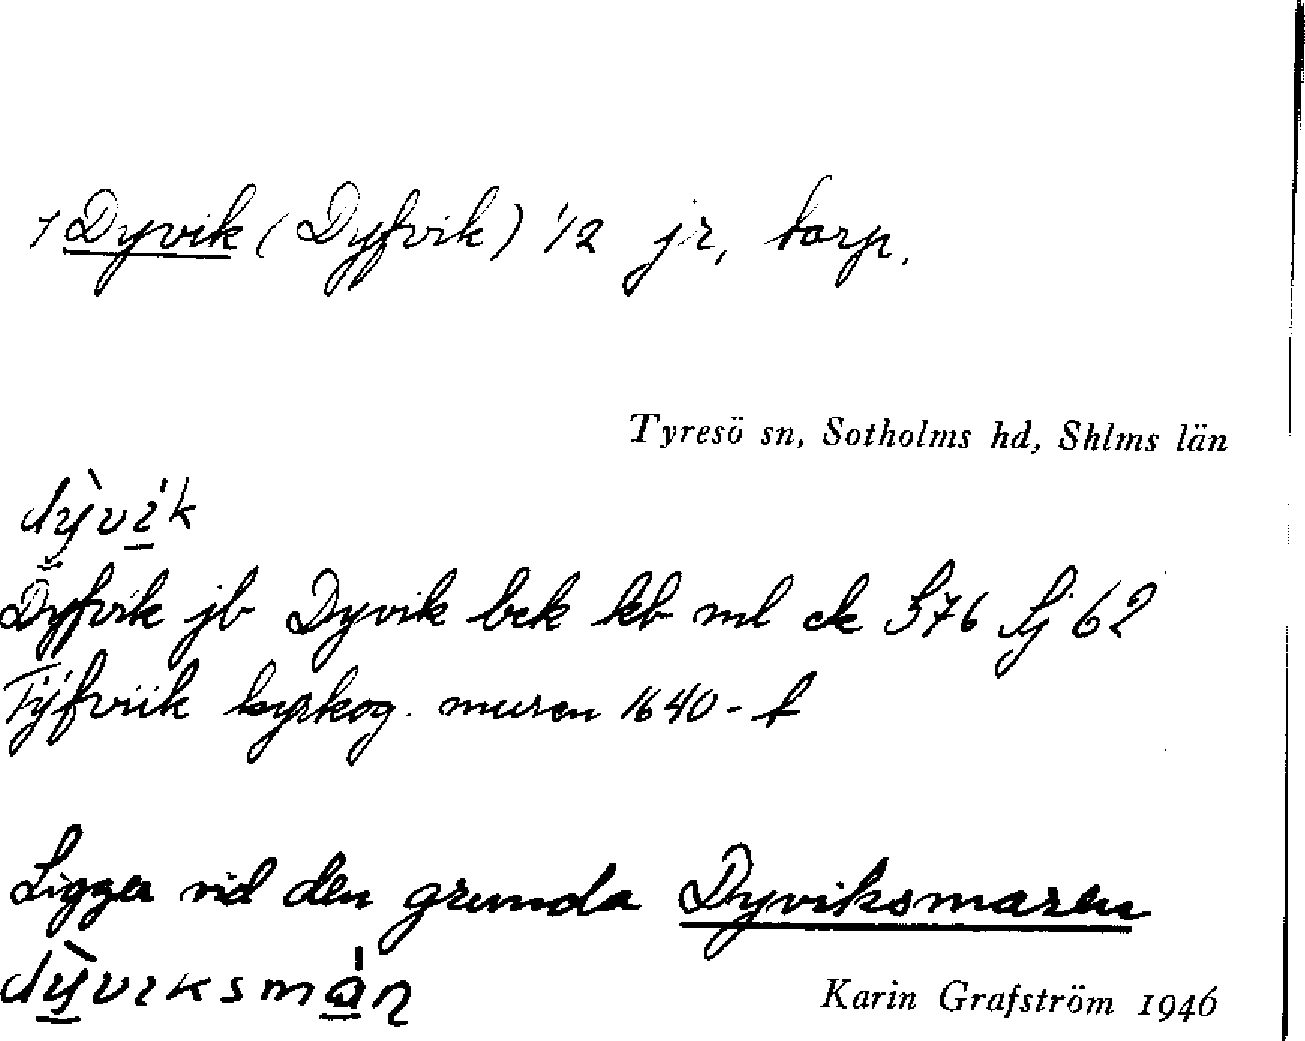 1 Dyvik (Dyfvik) 1/2 jr, torp.
Tyresö sn, Sotholms hd, Shlms län
dỳvi̱̍k
Dyfvik jb Dyvik bek kb ml ek S76 Sj 62
Tÿfviik kyrkog. muren 1640-t
Ligger vid den grunda Dyviksmaren
dỳ̱viksma̱̍n
Karin Grafström 1946